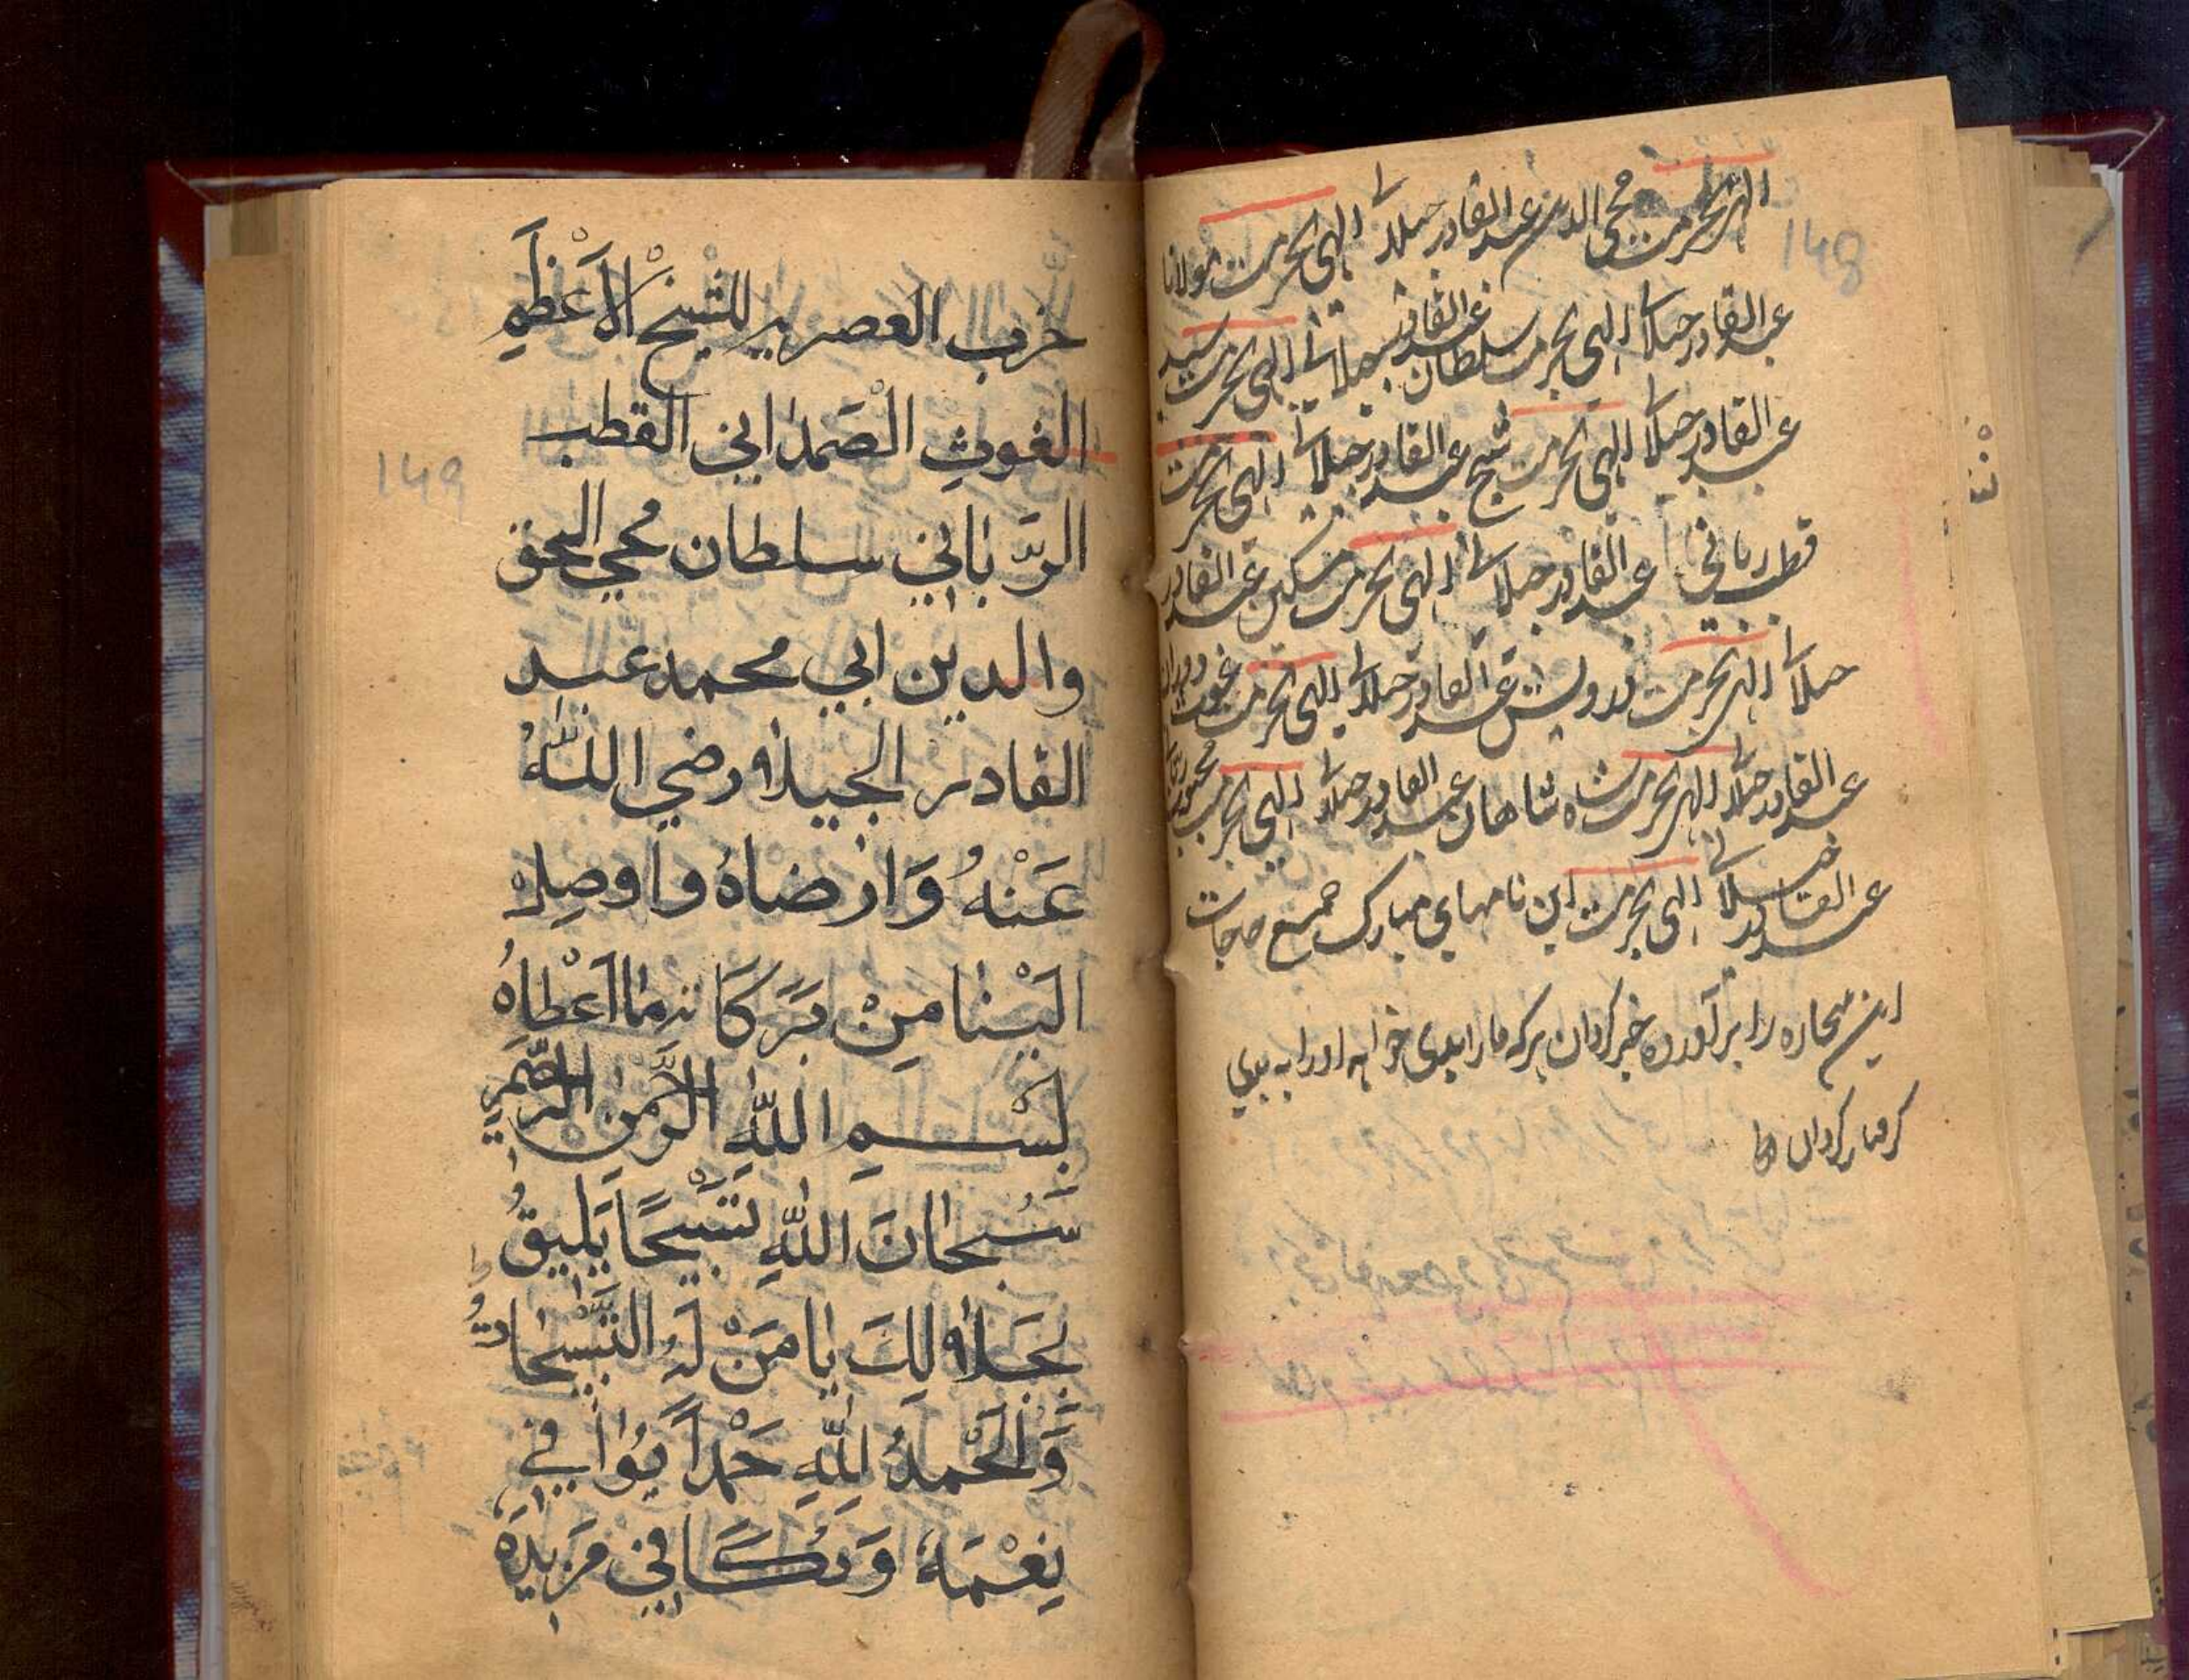 148
الهی بحرمت محی الدین عبدالقادر جیلانی الهی بحرمت مولانا
عبدالقادر جیلانی الهی بحرمت سلطان عبدالقادر جیلانی الهی بحرمت سید
عبدالقادر جیلانی الهی بحرمت شیخ عبدالقادر جیلانی الهی بحرمت
قطب ربانی عبدالقادر جیلانی الهی بحرمت مسکین عبدالقادر
جیلانی الهی بحرمت درویش عبدالقادر جیلانی الهی بحرمت غوث
عبدالقادر جیلانی الهی بحرمت شاه شاهان عبدالقادر جیلانی الهی بحرمت محبوب
عبدالقادر جیلانی الهی بحرمت این نامهای مبارک جمیع حاجات
این را برآورده خیر گردان هرکه مارا بدی خواهد اورا به بدی
گرفتار گردان
149
حزب العصر للشيخ الاَعْظَمِ
الغوثِ الصَمداني القطب
الرَّباني سلطان محي الحق
والدين ابي محمد عبد
القادر الجيلاني رضي اللّٰهُ
عَنْهُ وَارضاهُ واوصل
اليْنا مِنْ بَرَكَاته ما اَعْطاهُ
بِسْمِ اللّٰهِ الرَّحْمٰنِ الرَّحيمِ
سُبحانَ اللّٰهِ تَسْبيحًا يَليقُ
بِجَلالِكَ يا مَنْ لَهُ التَّسْبيحاتُ
وَالْحَمدُ لِلّٰهِ حَمْداً يُوافي
نِعْمَهُ وَيُكَافي مَزيدَهُ